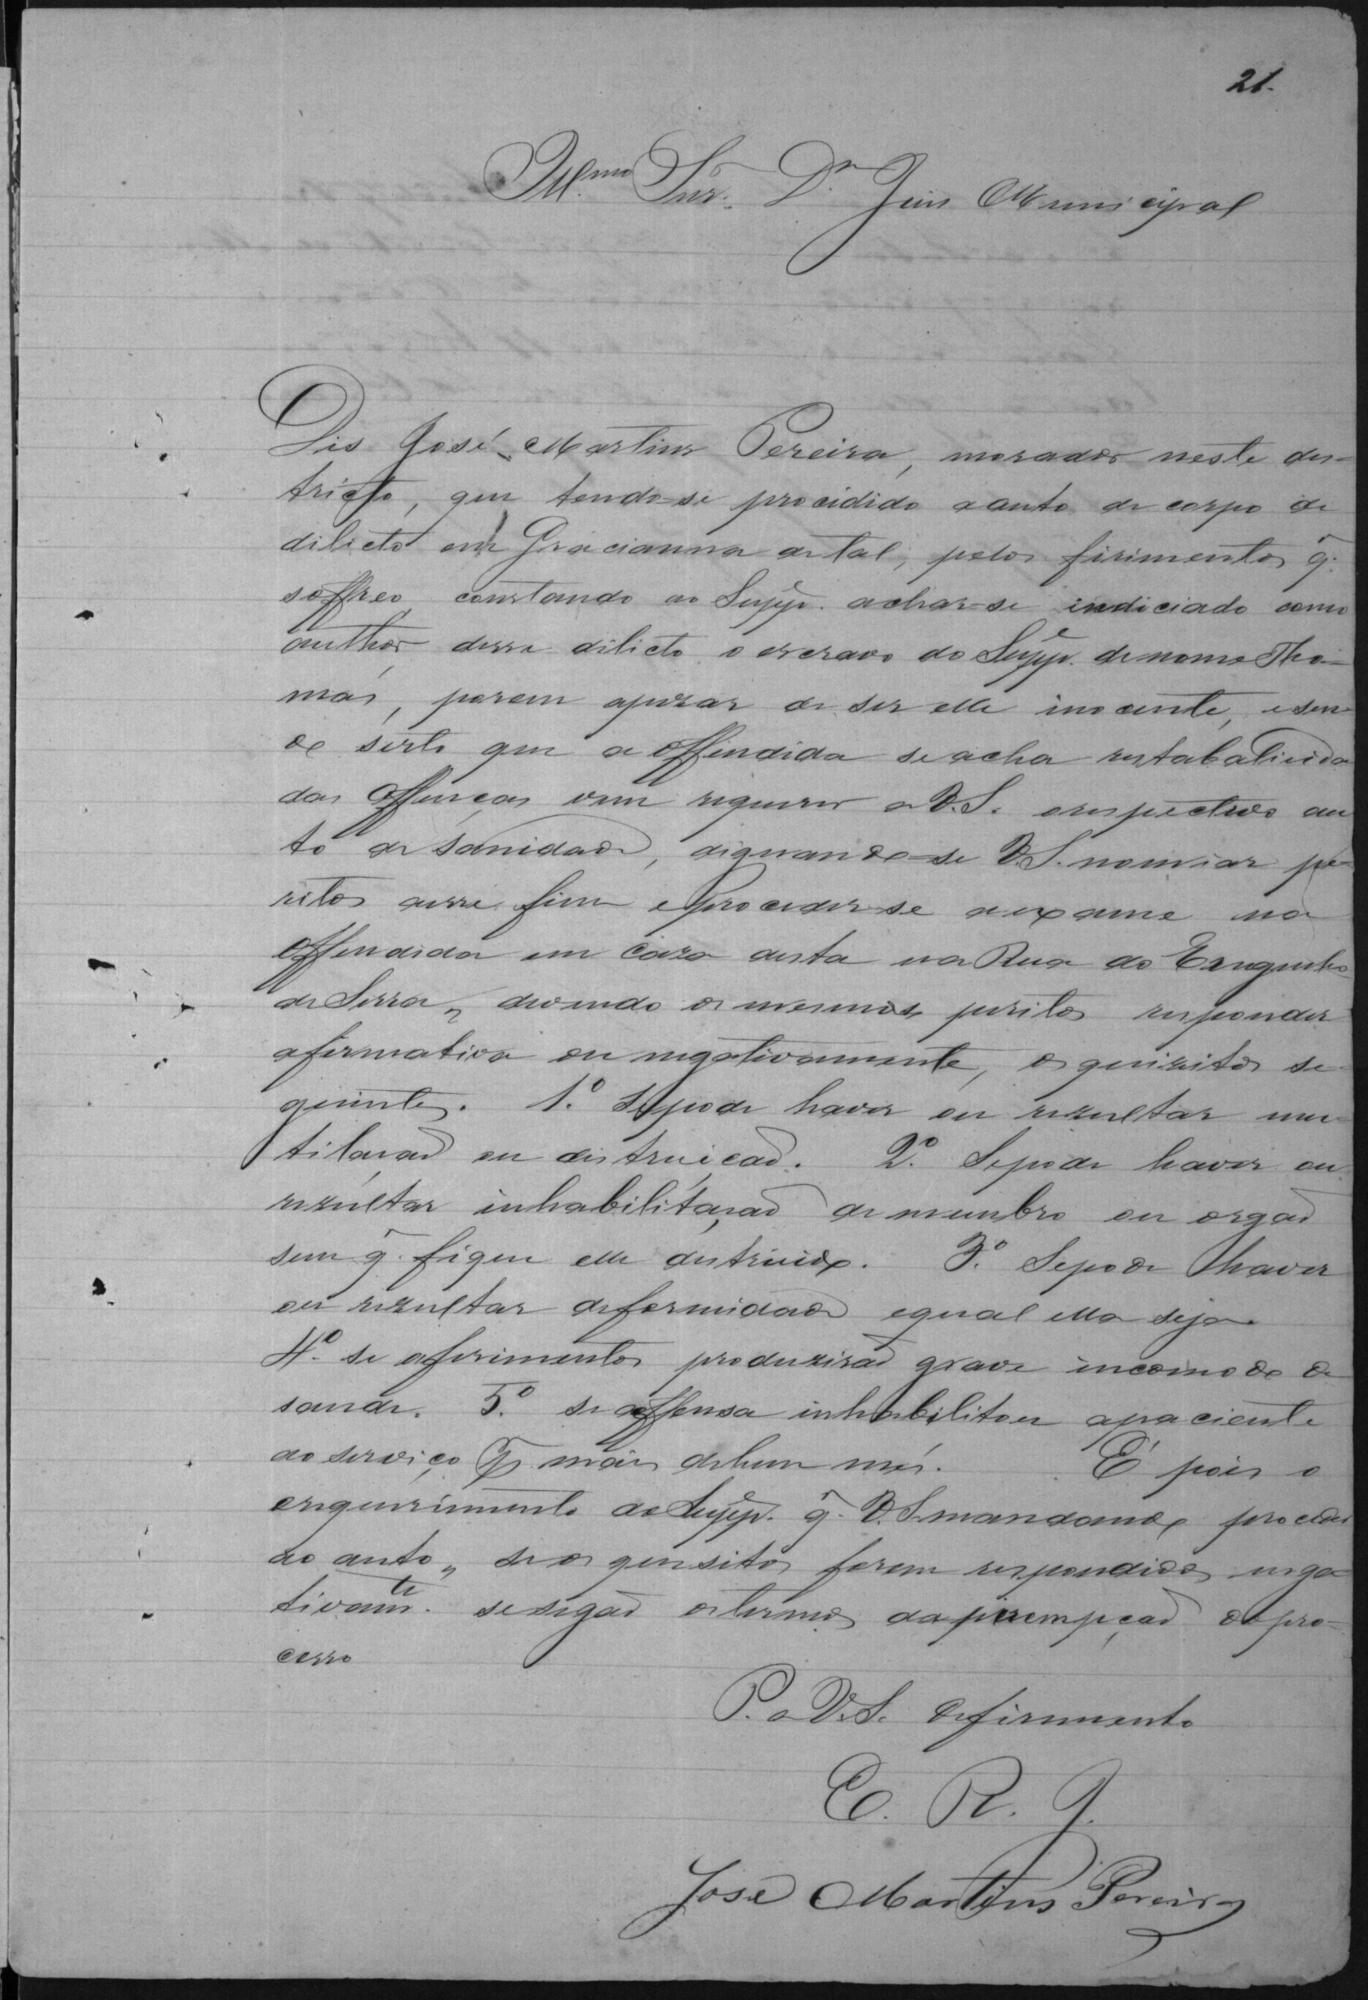 21.
Ill.mo Snr. Dr. Juis Municipal
Dis José Martins Pereira, morador neste des-
tricto, que tendo-se procidido a auto de corpo de
dilicto em Gracianna de tal, pelos firimentos q.
soffreo, constando ao Supp.e achar-se indiciado como
author desse dilicto o escravo do Supp.e de nome Tho-
mas, porem apezar de ser elle inocente, e sen-
do serto que a offendida se acha restabalicida
das offenças vem requerer a V.S. o respectivo au
to de sanidade, dignando-se V.S. nomiar pe-
ritos desse fim e proceder-se a exame na
offendida em caza desta na Rua do Engenho
de Serra, devendo os mesmos peritos responder
afirmativa ou negativamente, os quizitos se-
guintes. 1.º Se pode haver ou rezultar mu-
tilacaõ ou distruicaõ. 2.º Se pode haver ou
rezultar inhabilitaçaõ de membro ou orgaõ
sem q. fique elle distruido. 3.º Se pode haver
ou rezultar deformidade e qual ella seja
4.º se o ferimentos produziraõ grave incomodo de
saude. 5.º se a offensa inhabilitou a paciente
do serviço p.r mais de hum mês. É pois o
requerimento do Supp.e q. V.S. mandando proceder
ao auto, se os quesitos forem respondidos nega
tivam.te se sigaõ os termos da perempçaõ do pro-
cesso
P. a V.S. defirimento
E. R. J.
José Martins Pereira